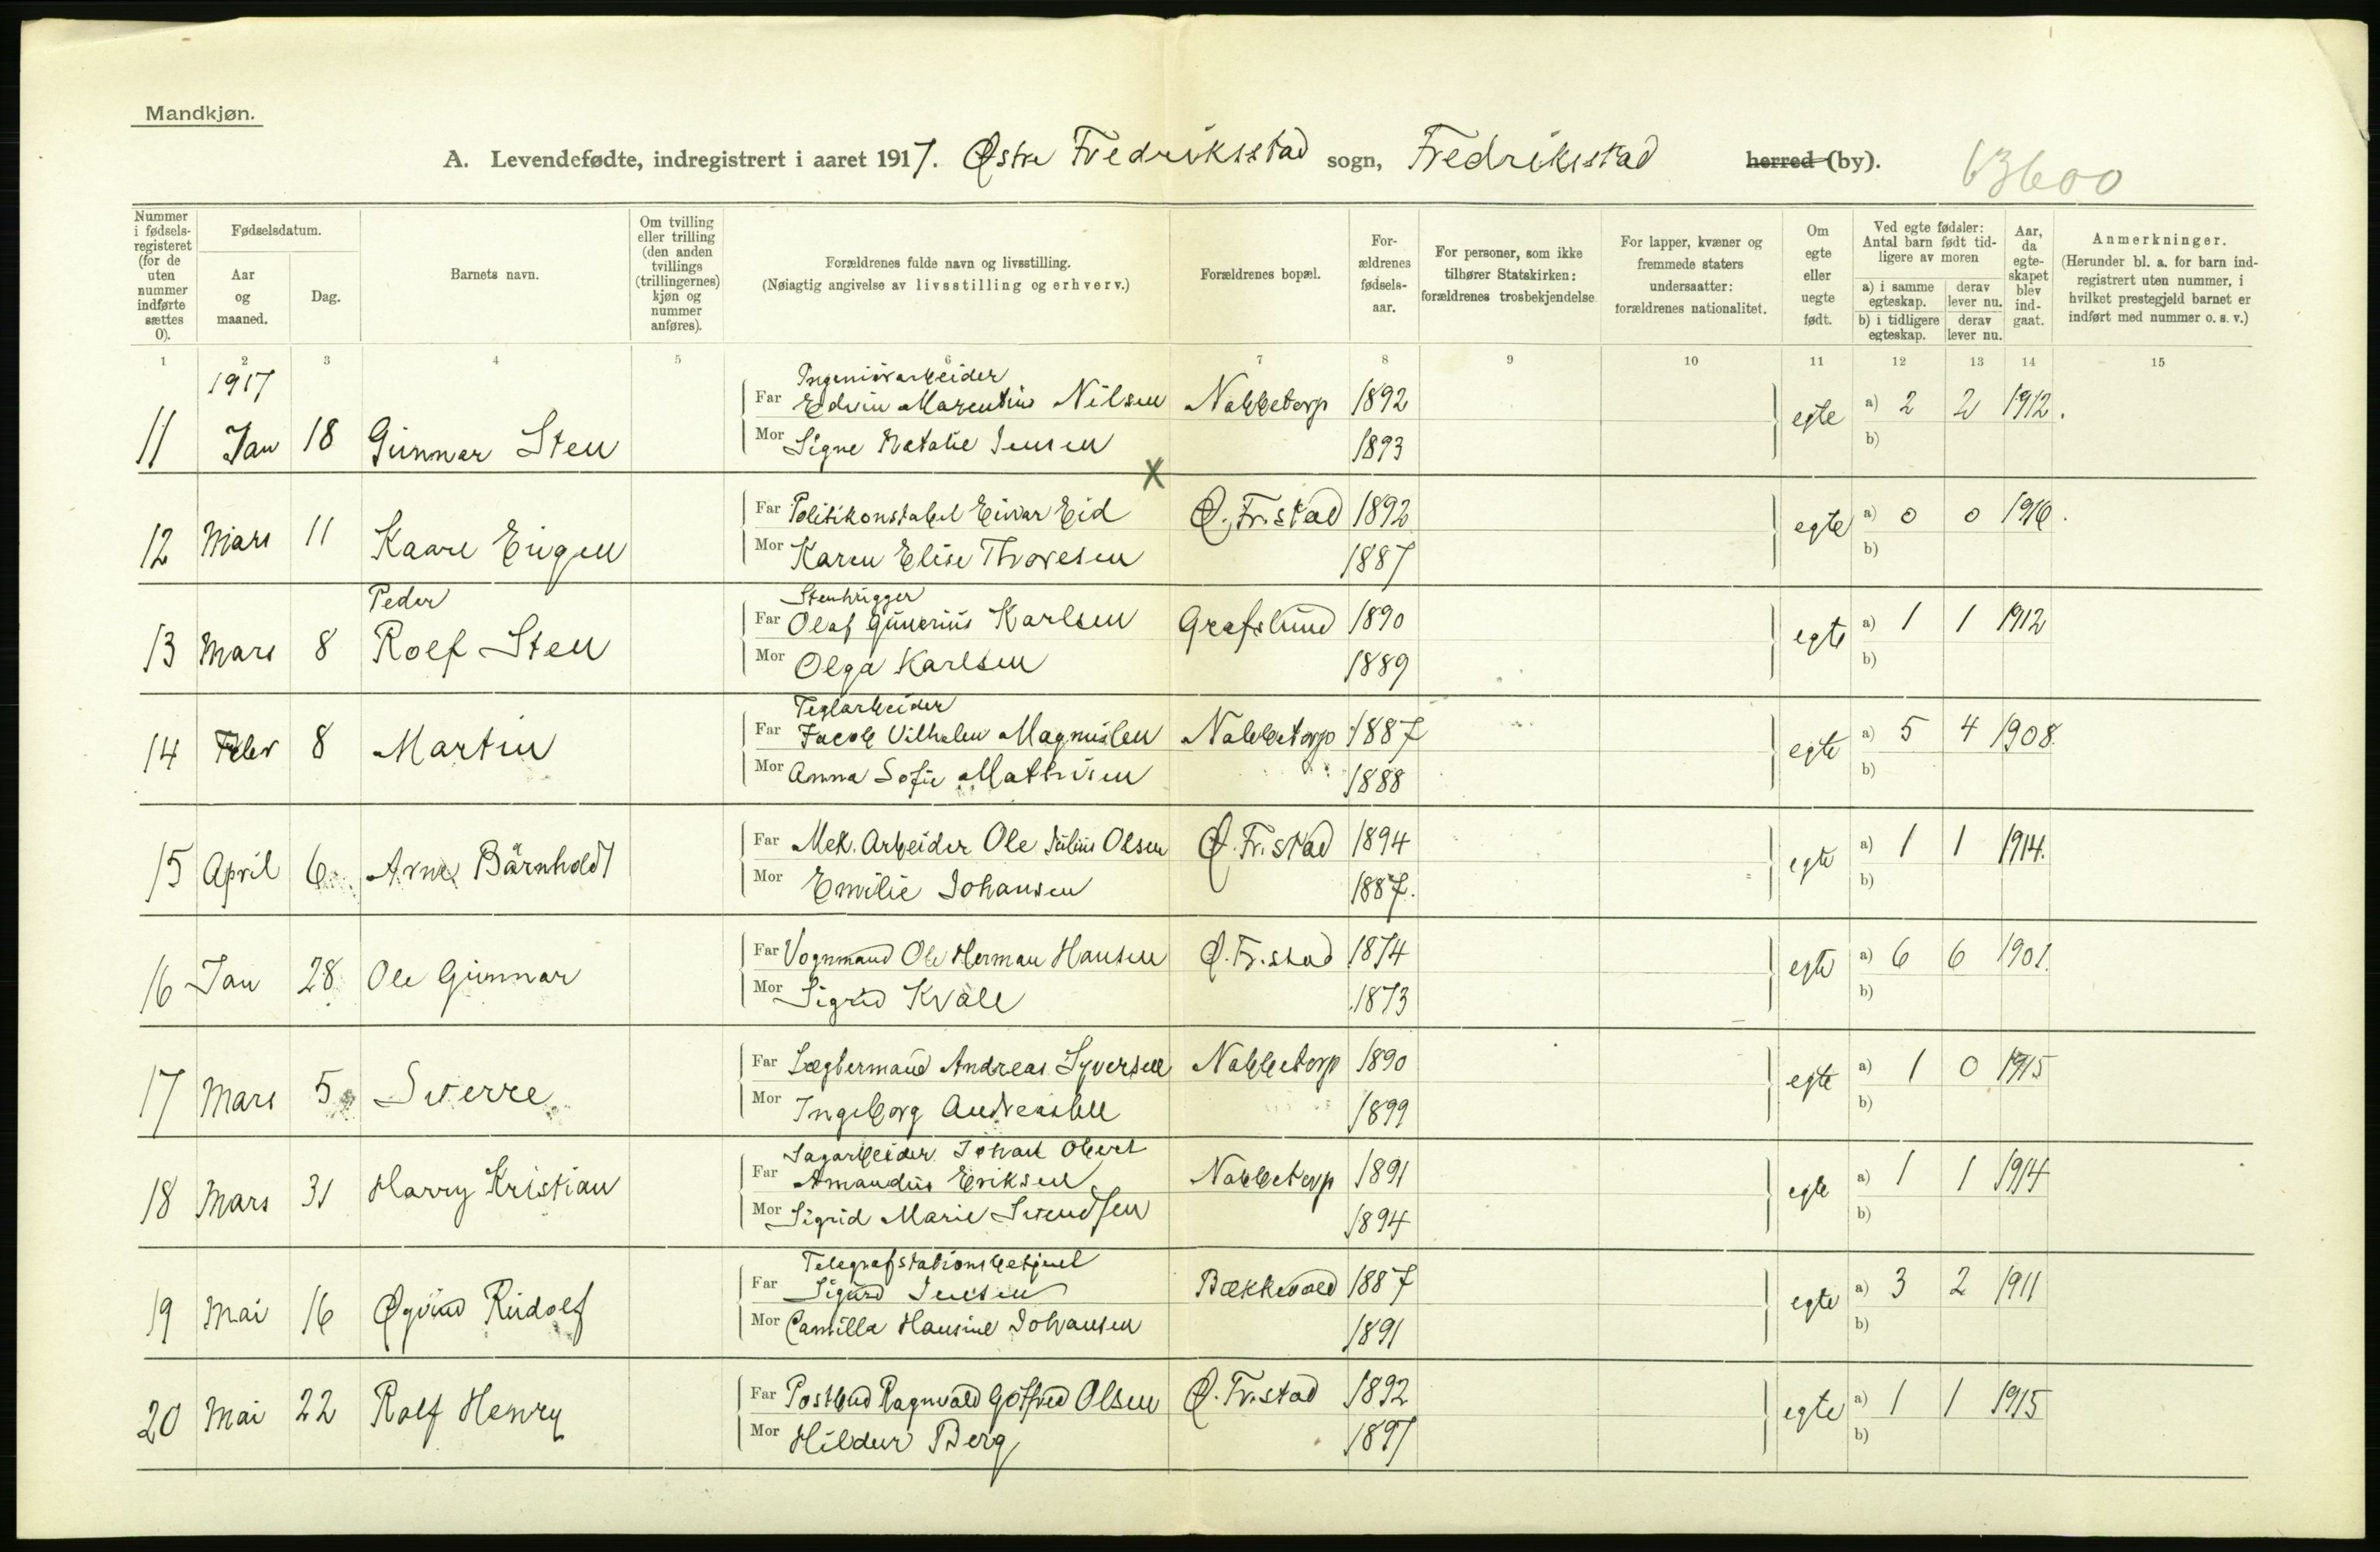 Mandkjøn.
A. Levendefødte, indregistrert i aaret 1917. Østre Fredriksstad sogn, Fredriksstad herred (by).
63600
Nummer i fødsels-registeret (for de uten nummer indførte sættes 0).
Fødselsdatum.
Aar og maaned.
Dag.
Barnets navn.
Om tvilling eller trilling (den anden tvillings (trillingernes) kjøn og nummer anføres).
Forældrenes fulde navn og livsstilling.
(Nøiagtig angivelse av livsstilling og erhverv.)
Forældrenes bopæl.
For-ældrenes fødsels-aar.
For personer, som ikke tilhører Statskirken: forældrenes trosbekjendelse
For lapper, kvæner og fremmede staters undersaatter: forældrenes nationalitet.
Om egte eller uegte født.
Ved egte fødsler: Antal barn født tid-ligere av moren
a) i samme egteskap.
derav lever nu.
b) i tidligere egteskap.
derav lever nu.
Aar, da egte-skapet blev ind-gaat.
Anmerkninger.
(Herunder bl. a. for barn ind-registrert uten nummer, i hvilket prestegjeld barnet er indført med nummer o. s. v.)
1 2 3 4 5 6 7 8 9 10 11 12 13 14 15
1917
11 Jan 18 Gunnar Sten
Far Edvin Marentius Nilsen Nabbetorp 1892 egte a) 2 2 1912.
Mor Signe Natalie Jensen 1893 b)
X
12 Mars 11 Kaare Eugen
Far Politikonstabel Eivar Eid Ø. Fr.stad 1892 egte a) 0 0 1916.
Mor Karen Elise Thoresen 1887 b)
Peder
13 Mars 8 Rolf Sten
Stenhugger
Far Olaf Gunerius Karlsen Grafslund 1890 egte a) 1 1 1912
Mor Olga Karlsen 1889 b)
14 Febr 8 Martin
Teglarbeider
Far Jacob Vilhelm Magnussen Nabbetorp 1887 egte a) 5 4 1908.
Mor Anna Sofie Mathisen 1888 b)
15 April 6 Arne Bärnholdt
Far Mek. Arbeider Ole Julius Olsen Ø. Fr.stad 1894 egte a) 1 1 1914.
Mor Emilie Johansen 1887. b)
16 Jan 28 Ole Gunnar
Far Vognmand Ole Herman Hansen Ø. Fr.stad 1874 egte a) 6 6 1901.
Mor Sigrid Kvale 1873 b)
17 Mars 5 Sverre
Far Lægtermand Andreas Syversen Nabbetorp 1890 egte a) 1 0 1915
Mor Ingeborg Andreassen 1899 b)
18 Mars 31 Harry Kristian
Sagarbeider Johan Obert
Far Amandus Eriksen Nabbetorp 1891 egte a) 1 1 1914
Mor Sigrid Marie Svendsen 1894 b)
19 Mai 16 Øyvind Rudolf
Telegrafstationsbetjent
Far Sigurd Jensen Bækkevold 1887 egte a) 3 2 1911
Mor Camilla Hansine Johansen 1891 b)
20 Mai 22 Rolf Henry
Far Postbud Ragnvald Gotfred Olsen Ø. Fr.stad 1892 egte a) 1 1 1915
Mor Hildur Berg 1897 b)